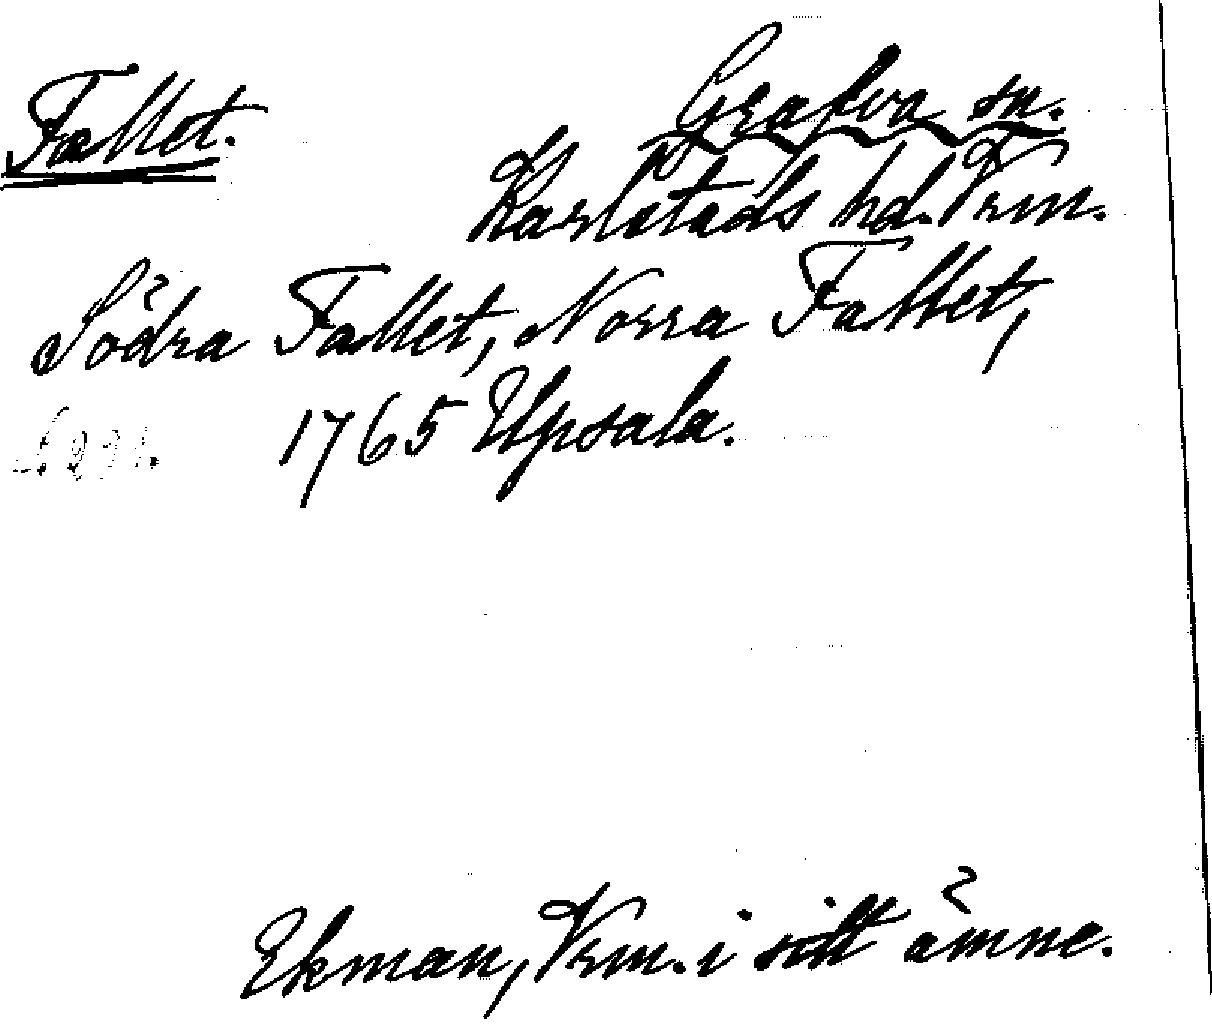 Fallet.
Grafva sn.
Karlstads hd. Vrm.
Södra Fallet, Norra Fallet,
1765 Upsala.
Ekman, Vrm. i sitt ämne.